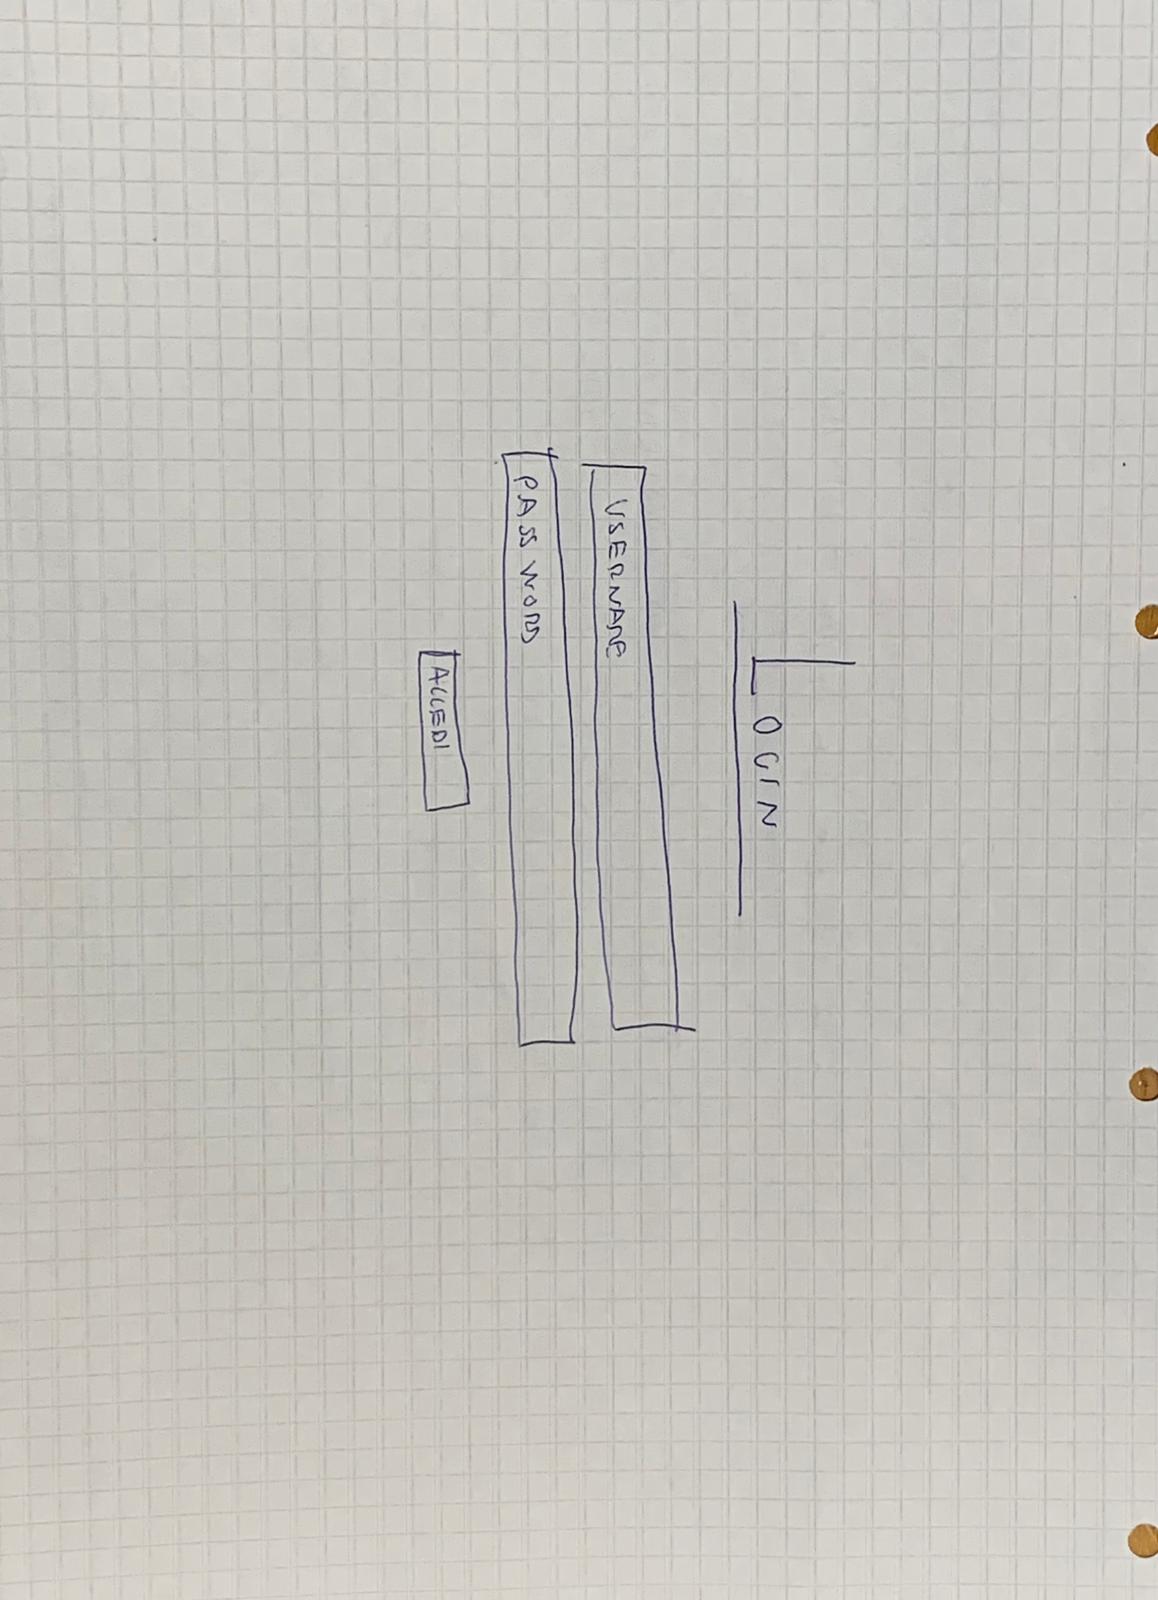 LOGIN
USERNAME
PASSWORD
ACCEDI